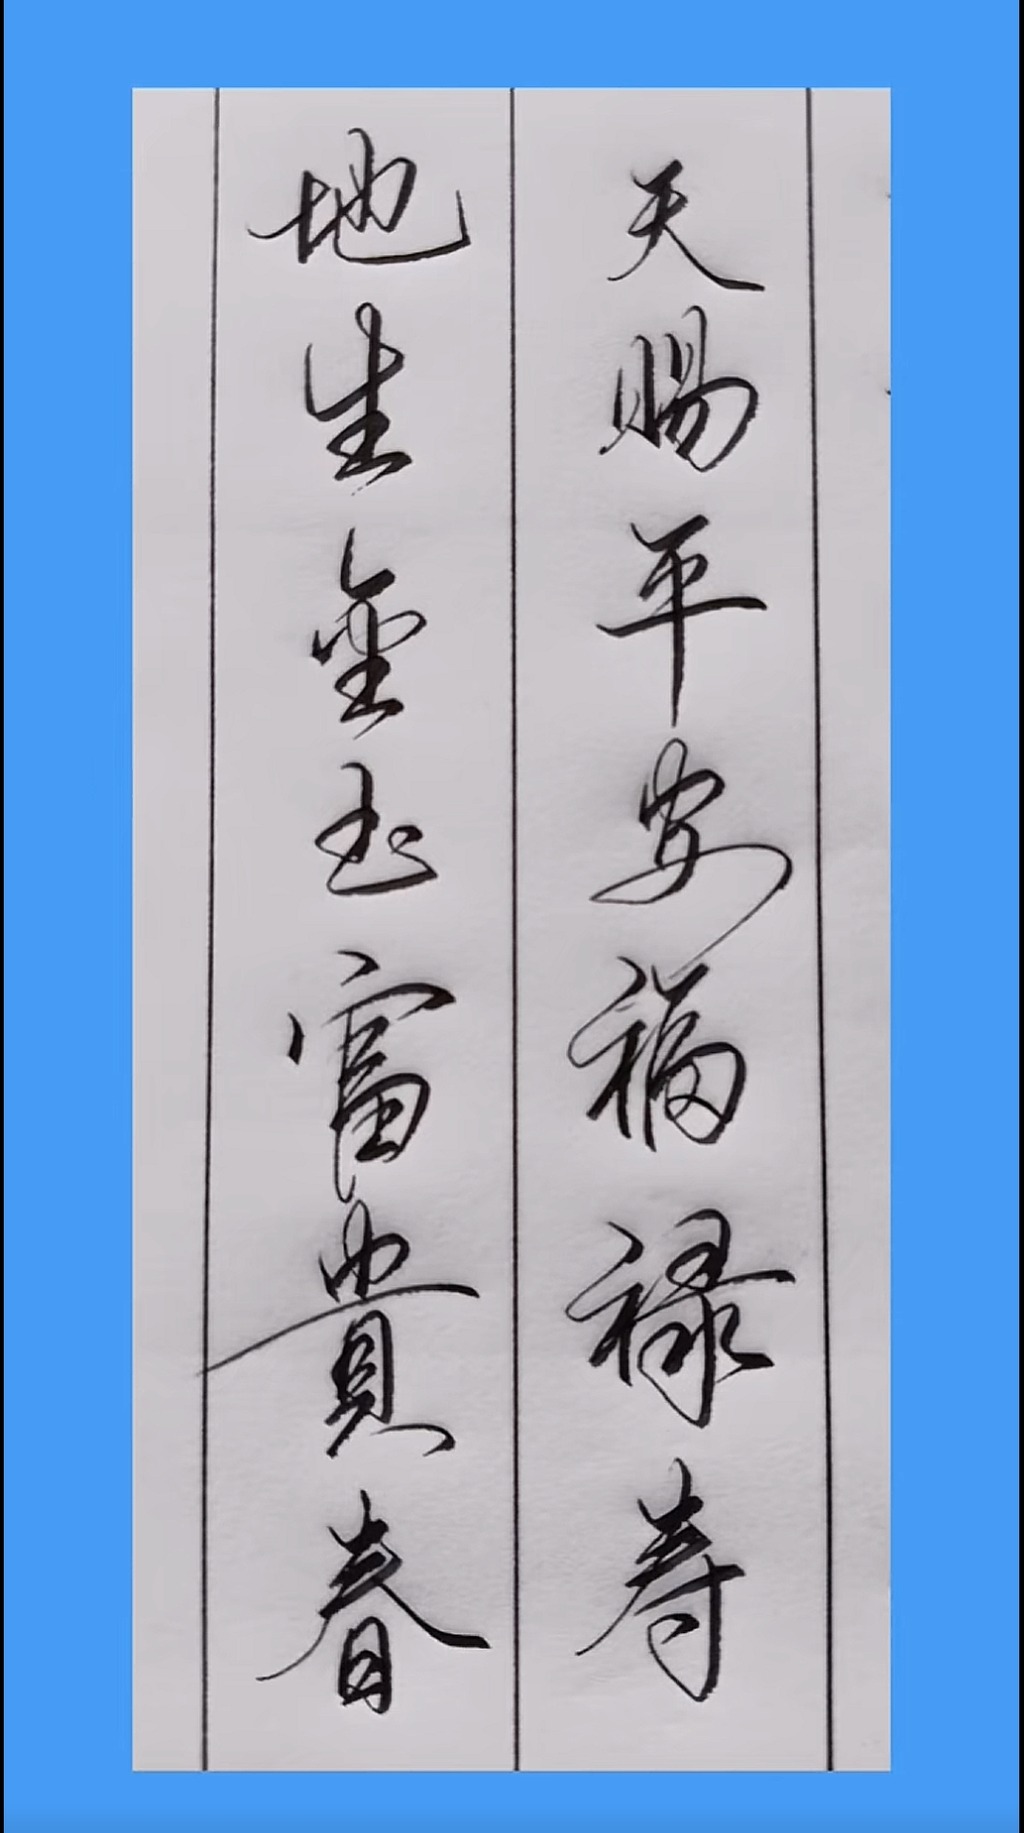 天赐平安福禄寿
地生金玉富貴春